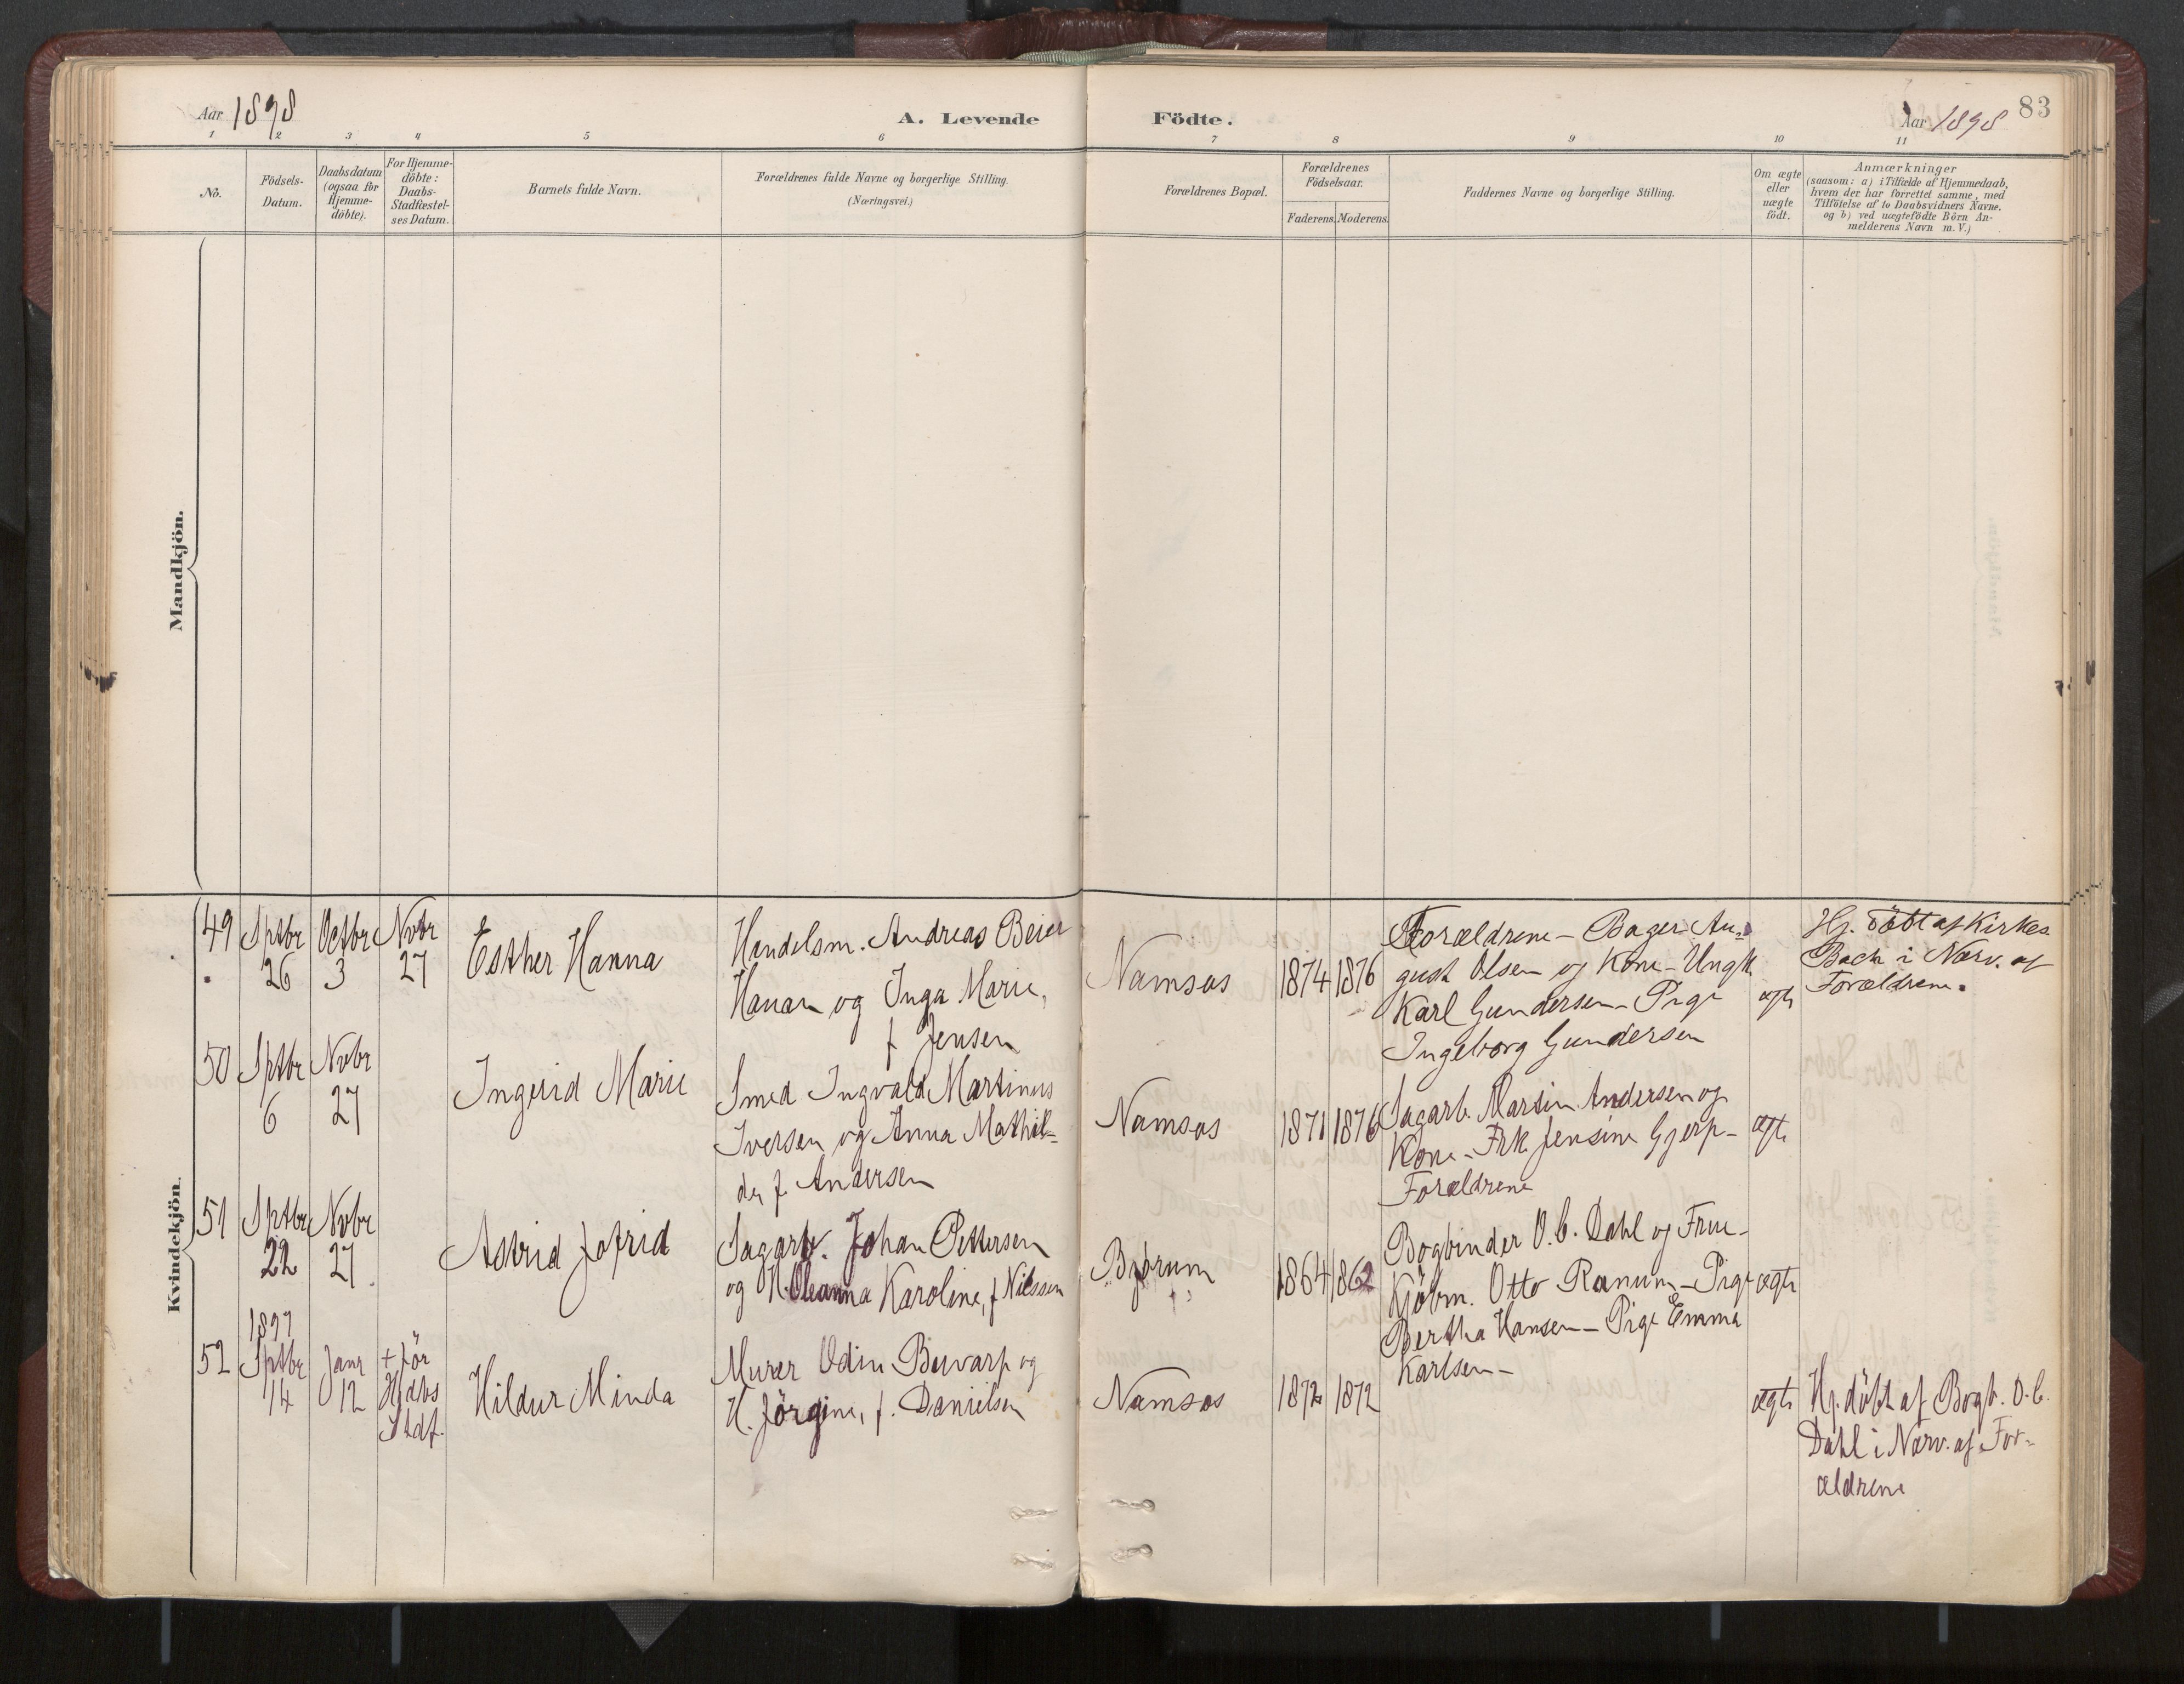 Aar 1898
A. Levende Födte.
Aar 1898
83
1 2 3 4 5 6 7 8 9 10 11
No.
Födsels-
Datum.
Daabsdatum
(ogsaa for
Hjemme-
döbte).
For Hjemme-
döbte:
Daabs-
Stadfæstel-
ses Datum.
Barnets fulde Navn.
Forældrenes fulde Navne og borgerlige Stilling.
(Næringsvei.)
Forældrenes Bopæl.
Forældrenes
Födselsaar.
Faderens. Moderens.
Faddernes Navne og borgerlige Stilling.
Om ægte
eller
uægte
födt.
Anmærkninger
(saasom: a) i Tilfælde af Hjemmedaab,
hvem der har forrettet samme, med
Tilföielse af to Daabsvidners Navne.
og b) ved uægtefödte Börn An-
melderens Navn m. V.)
Mandkjön.
Kvindekjön.
49
Sptbr
26
Octbr
3
Novbr
27
Esther Hanna
Handelsm. Andreas Beier
Hanan og Inga Marie,
f Jensen
Namsos
1874
1876
Forældrene - Bager Au-
gust Olsen og Kone - Ungk
Karl Gundersen - Pige
Ingeborg Gundersen
ægte
Hj. döbt af Kirkes.
Bach i Nærv. af
Forældrene.
50
Sptbr
6
Novbr
27
Ingerid Marie
Smed Ingvald Martinus
Iversen og Anna Mathil-
de, f. Andersen
Namsos
1871
1876
Sagarb. Martin Andersen og
Kone - Frk. Jensine Gjerp -
Forældrene
ægte
51
Sptbr
22
Novbr
27
Astrid Jofrid
Sagarb. Johan Pettersen
og H. Oleanna Karoline, f Nilssen
Bjørum
1864
1862
Bogbinder O. C. Dahl og Frue -
Kjöbm. Otto Ranum - Pige
Bertha Hansen - Pige Emma
Karlsen -
ægte
52
1897
Sptbr
14
Janr
12
+ för
Hjdbs
Stdf.
Hildur Minda
Murer Odin Buvarp og
H. Jörgine, f. Danielsen
Namsos
1872
1872
ægte
Hj. döbt af Bogb. O. C.
Dahl i Nærv. af For-
ældrene